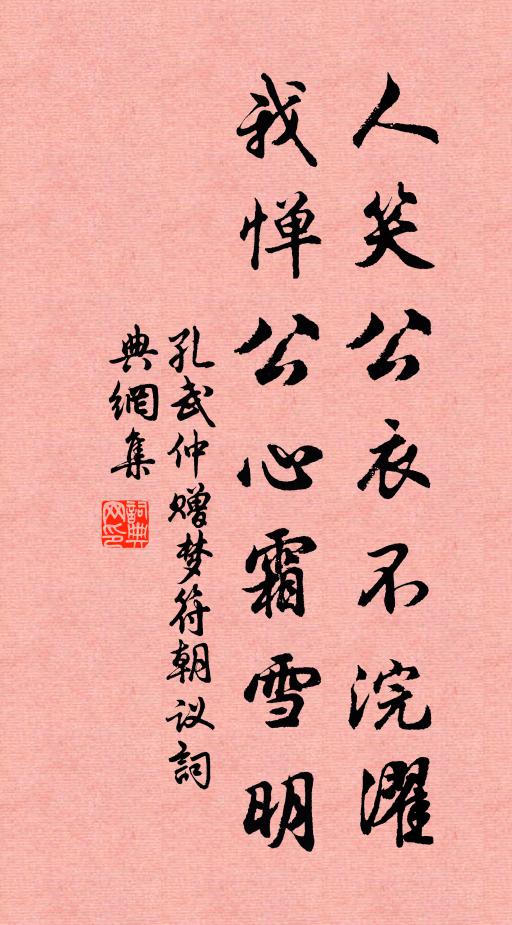 人笑公衣不浣濯
我惮公心霜雪明
孔武仲赠梦符朝议词
典網集
詞典网印